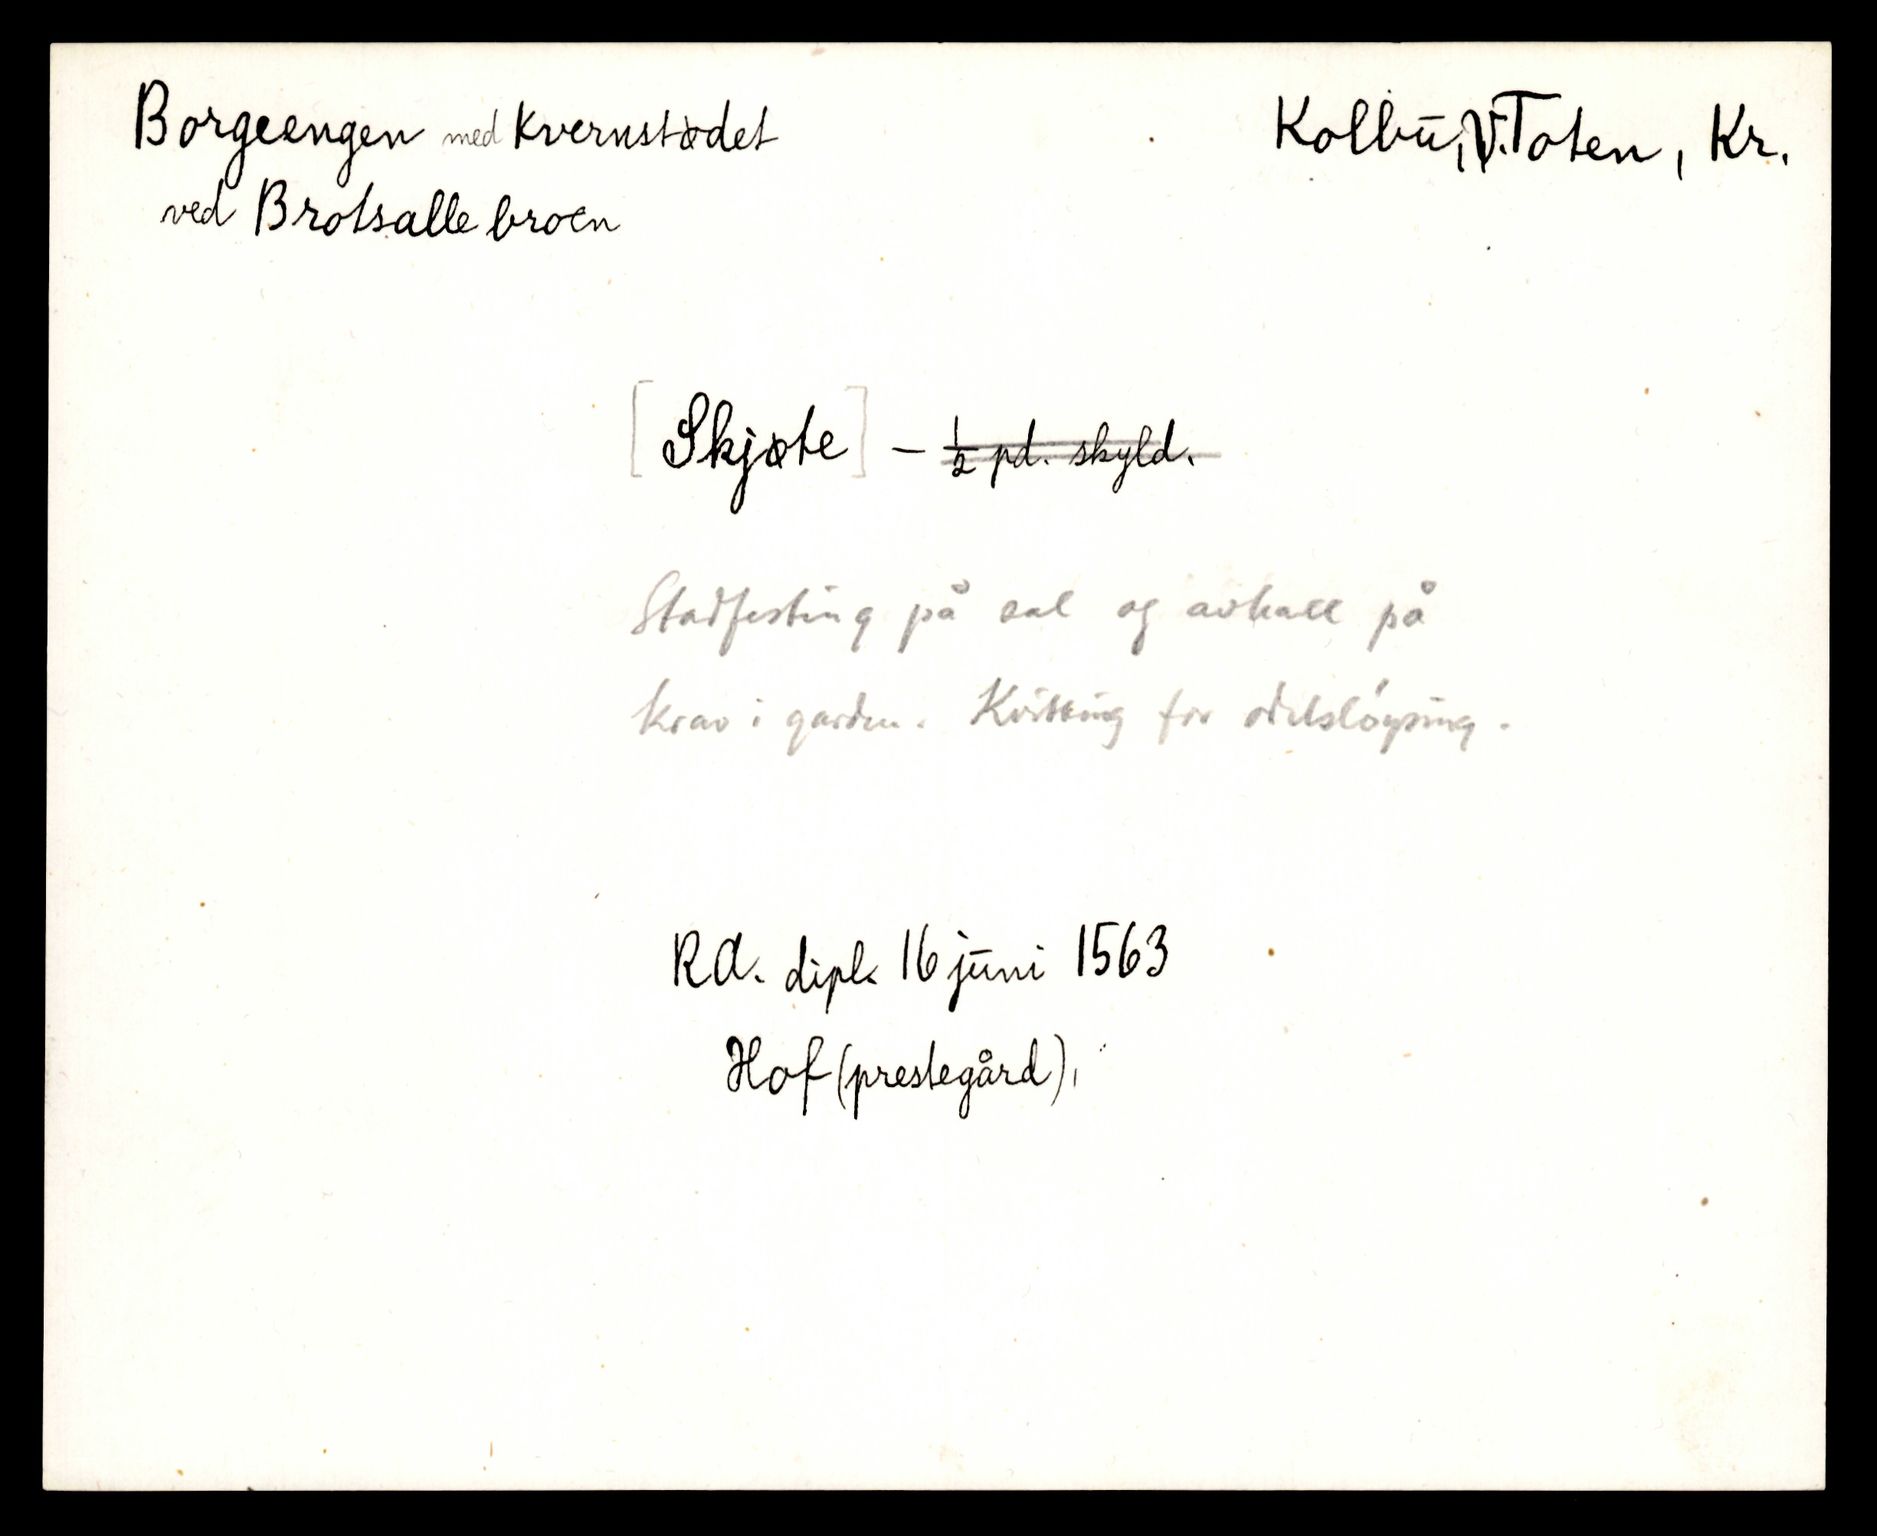 Borgeengen med Kvernstødet
ved Brotsalle broen
Kolbu, V. Toten, Kr.
[Skjøte] – ½ pd. skyld.
Stadfesting på sal og avkall på
krav i garden. Kvittring for odelsløysing.
RA. dipl. 16 juni 1563
Hof (prestegård),